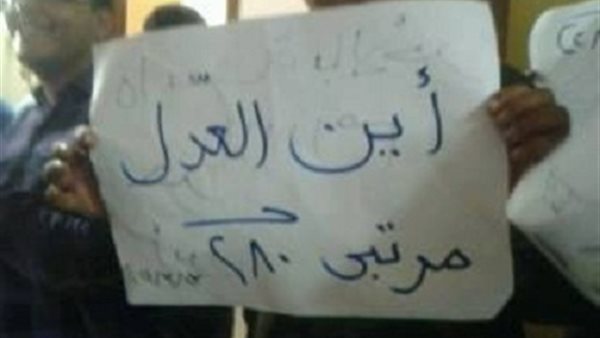 أين العدل
مرتبى ٢٨٠ جـ